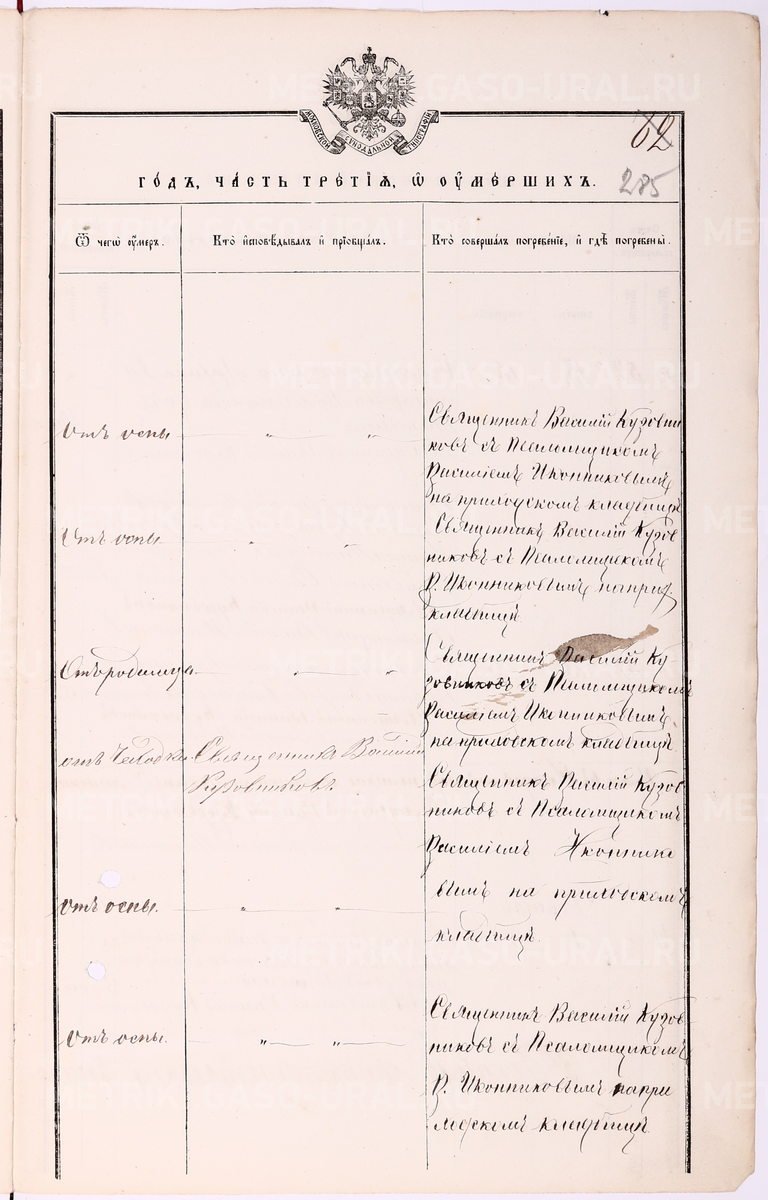 МОСКОВСКОЙ СѴНОДАЛЬНОЙ ТИПОГРАФІИ
62
285
ГО́ДЪ, ЧА́СТЬ ТРЕ́ТІѦ, Ѡ҆ ОУ҆МЕ́РШИХЪ.
Ѿ чегѡ̀ оу҆́меръ.
Кто̀ и҆сповѣ́дывалъ и҆ прїѡбща́лъ.
Кто̀ соверша́лъ погребе́нїе, и҆ гдѣ̀ погребены̀.
Отъ оспы
„ „
Священникъ Василій Кузовни
ковъ съ Псаломщикомъ
Василіемъ Иконниковымъ
на приходскомъ кладбищѣ
Отъ оспы
„ „
Священникъ Василій Кузов
никовъ съ Псаломщикомъ
В. Иконниковымъ на прих.
кладбищѣ
Отъ родимца
„ „
Священникъ Василій Ку-
зовниковъ съ Псаломщикомъ
Василіемъ Иконниковымъ
на приходскомъ кладбищѣ
отъ Чахотки
Священникъ Василій
Кузовниковъ
Священникъ Василій Кузов
никовъ съ Псаломщикомъ
Василіемъ Иконнико
вымъ на приходскомъ
кладбищѣ.
Отъ оспы.
„ „
Отъ оспы.
„ „
Священникъ Василій Кузов
никовъ съ Псаломщикомъ
В. Иконниковымъ на при
ходскомъ кладбищѣ
METRIKI.GASO-URAL.RU